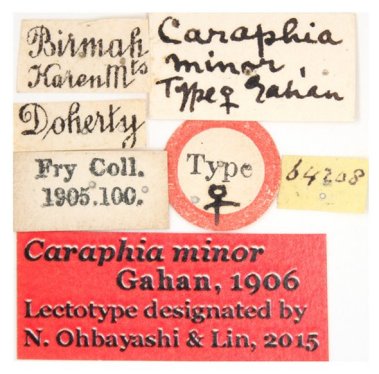 Birmah
Karen Mts
Caraphia
minor,
Type ♀ Gahan
Doherty
Fry Coll.
1905.100.
Type
♀
64208
Caraphia minor
Gahan, 1906
Lectotype designated by
N. Ohbayashi & Lin, 2015